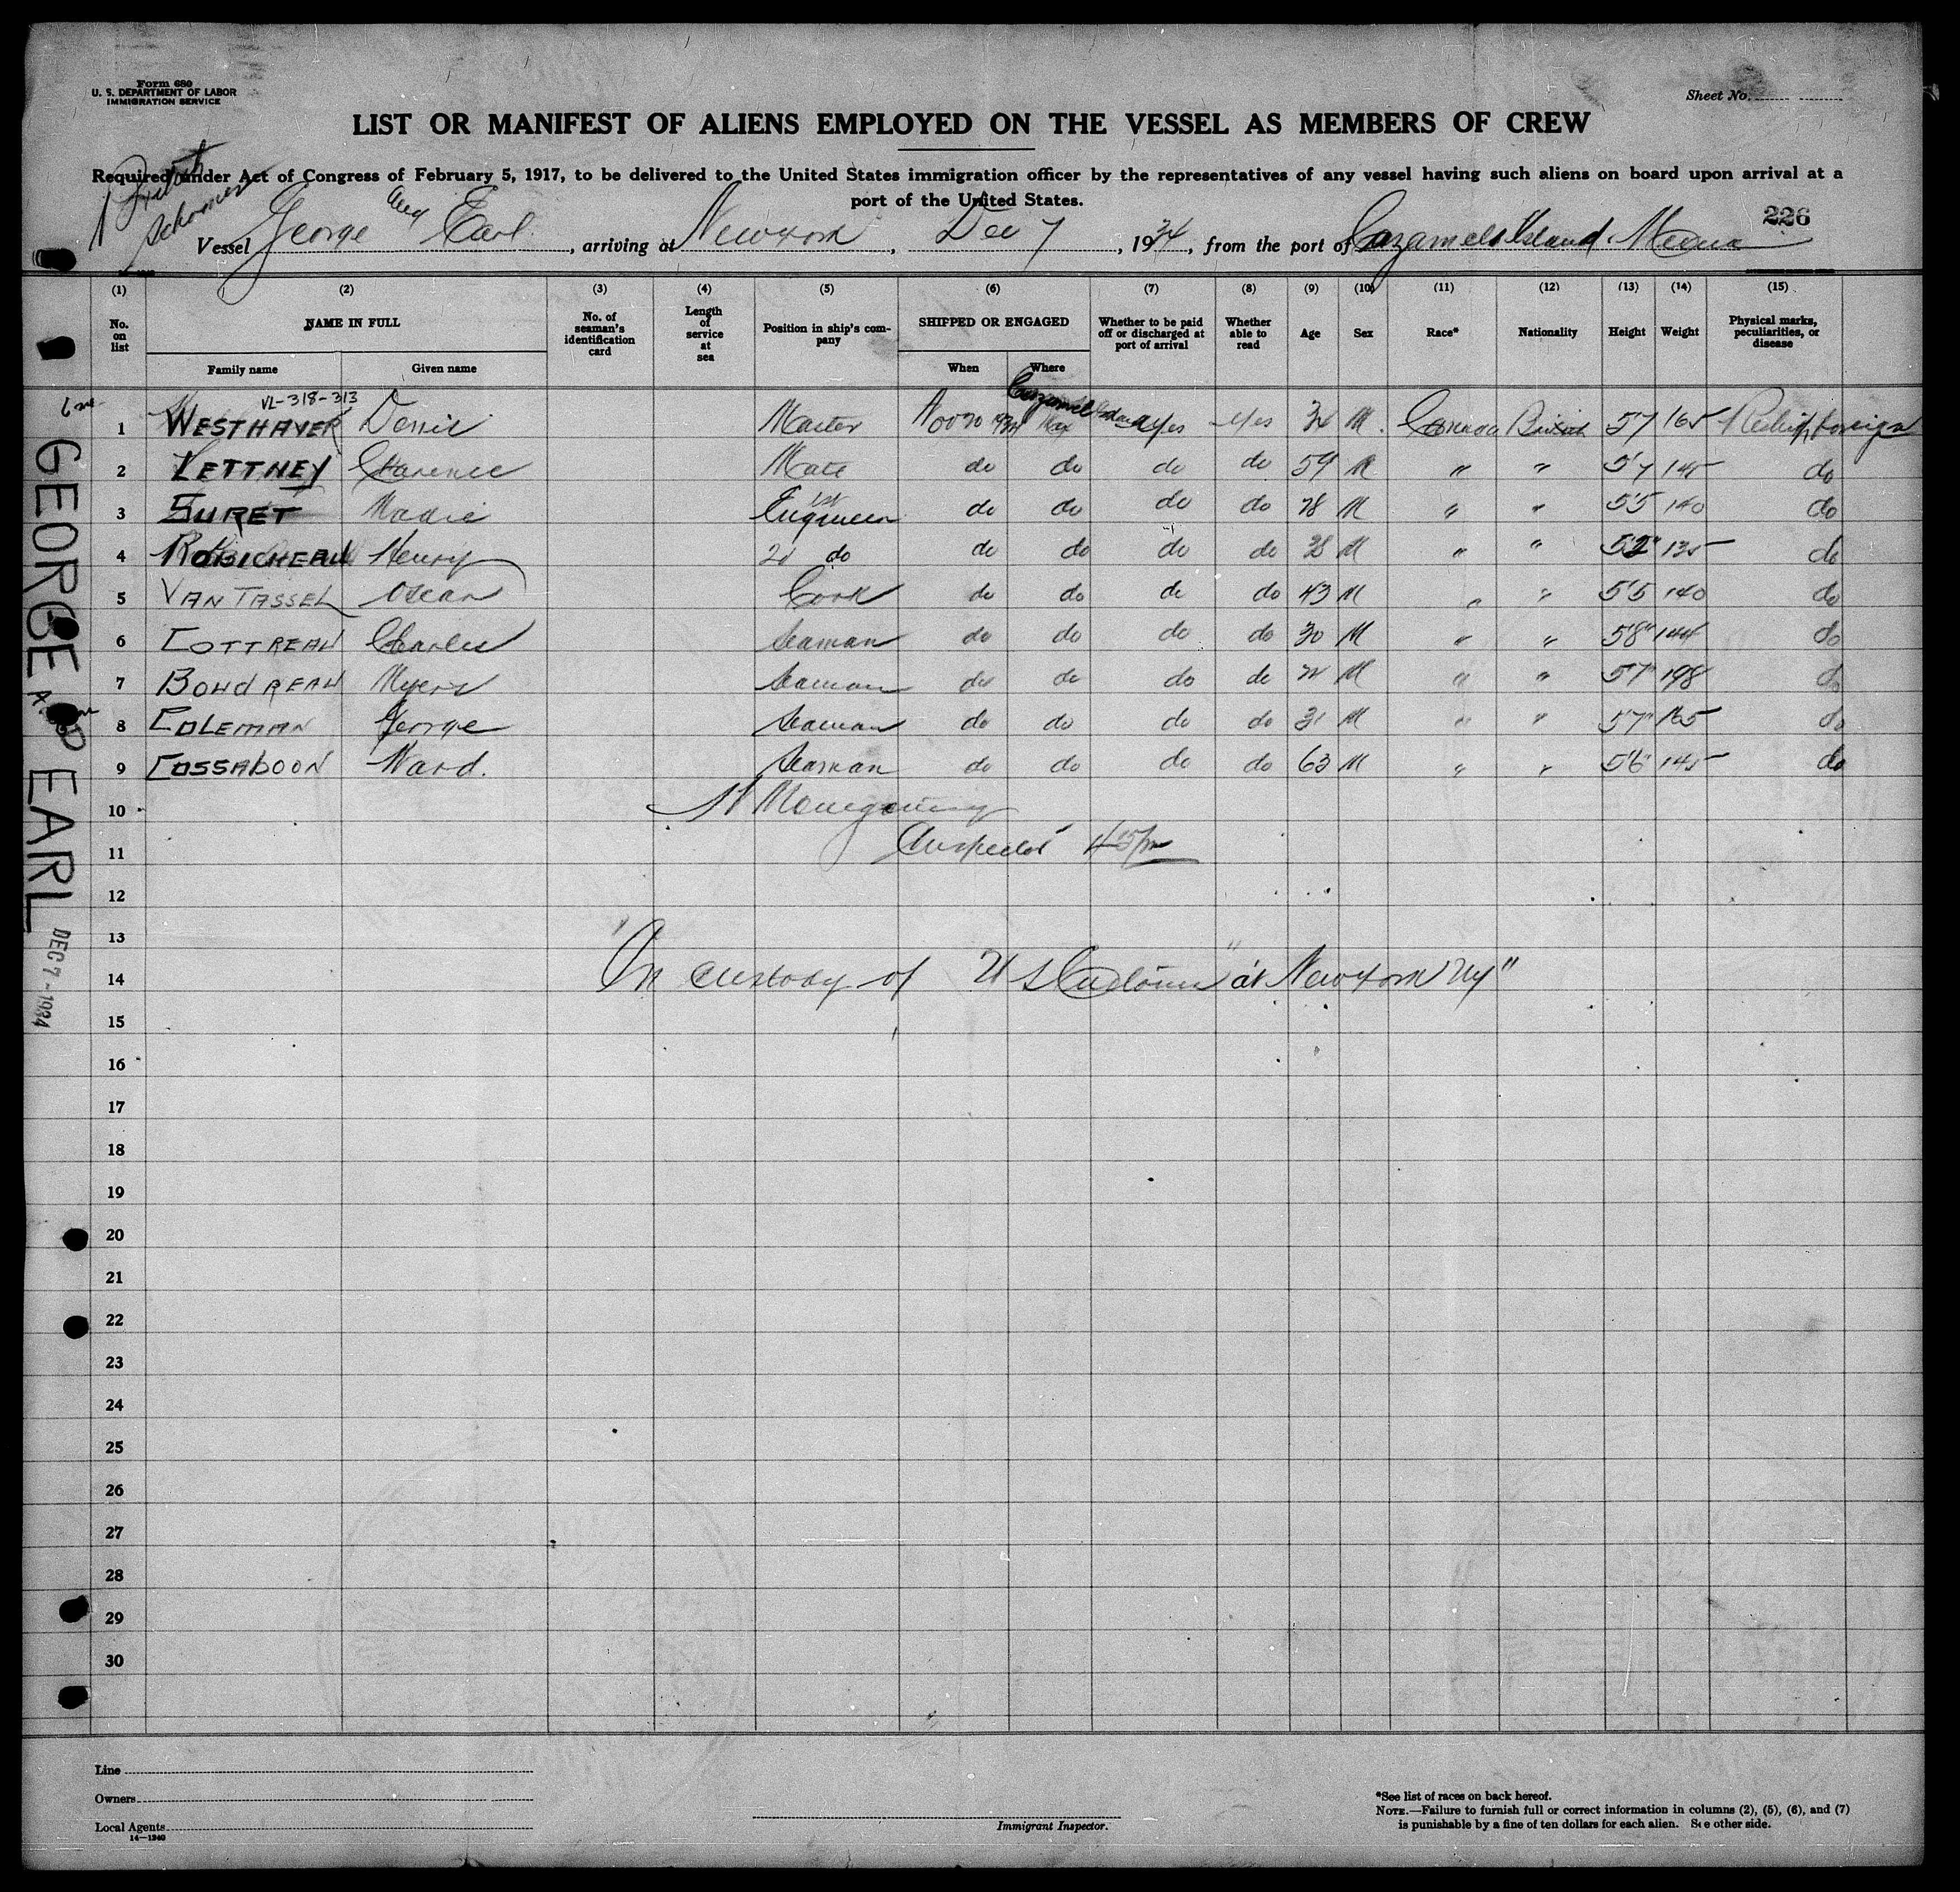 Form 680
U. S. DEPARTMENT OF LABOR
IMMIGRATION SERVICE
Sheet No.
LIST OR MANIFEST OF ALIENS EMPLOYED ON THE VESSEL AS MEMBERS OF CREW
Required under Act of Congress of February 5, 1917, to be delivered to the United States immigration officer by the representatives of any vessel having such aliens on board upon arrival at a
port of the United States.
British
Schooner
226
Vessel George and Earl, arriving at New York, Dec 7, 1934, from the port of Island. Mexico
(1) (2) (3) (4) (5) (6) (7) (8) (9) (10) (11) (12) (13) (14) (15)
No. on list
NAME IN FULL
Family name Given name
No. of seaman's identification card
Length of service at sea
Position in ship's company
SHIPPED OR ENGAGED
When Where
Whether to be paid off or discharged at port of arrival
Whether able to read
Age
Sex
Race*
Nationality
Height
Weight
Physical marks, peculiarities, or disease
VL-318-313
1 WESTHAVER Master Nov 20 1934 yes yes 34 M. Canada British 57 165 foreign
2 LETTNEY Clarence Mate do do do do 59 M " " 5'7 145 do
3 SURET 1st Engineer do do do do 28 M " " 5'5 140 do
4 ROBICHEAU Henry 2d do do do do do 38 M " " 52" 135 do
5 VAN TASSEL Oscar Cook do do do do 43 M " " 5'5 140 do
6 COTTREAU Charles Seaman do do do do 30 M " " 5'8" 144 do
7 BOUDREAU Myers Seaman do do do do M " " 57" 198 do
8 COLEMAN George Seaman do do do do 31 M " " 5'7" 165 do
9 COSSABOON Ward. Seaman do do do do 63 M " " 5'6" 145 do
10
11 Inspector
12
13
14 "In custody of U S Customs" at New York NY"
15
16
17
18
19
20
21
22
23
24
25
26
27
28
29
30
GEORGE AND EARL
DEC 7 - 1934
Line
Owners
Local Agents
14—1240
Immigrant Inspector.
*See list of races on back hereof.
NOTE.—Failure to furnish full or correct information in columns (2), (5), (6), and (7)
is punishable by a fine of ten dollars for each alien. See other side.